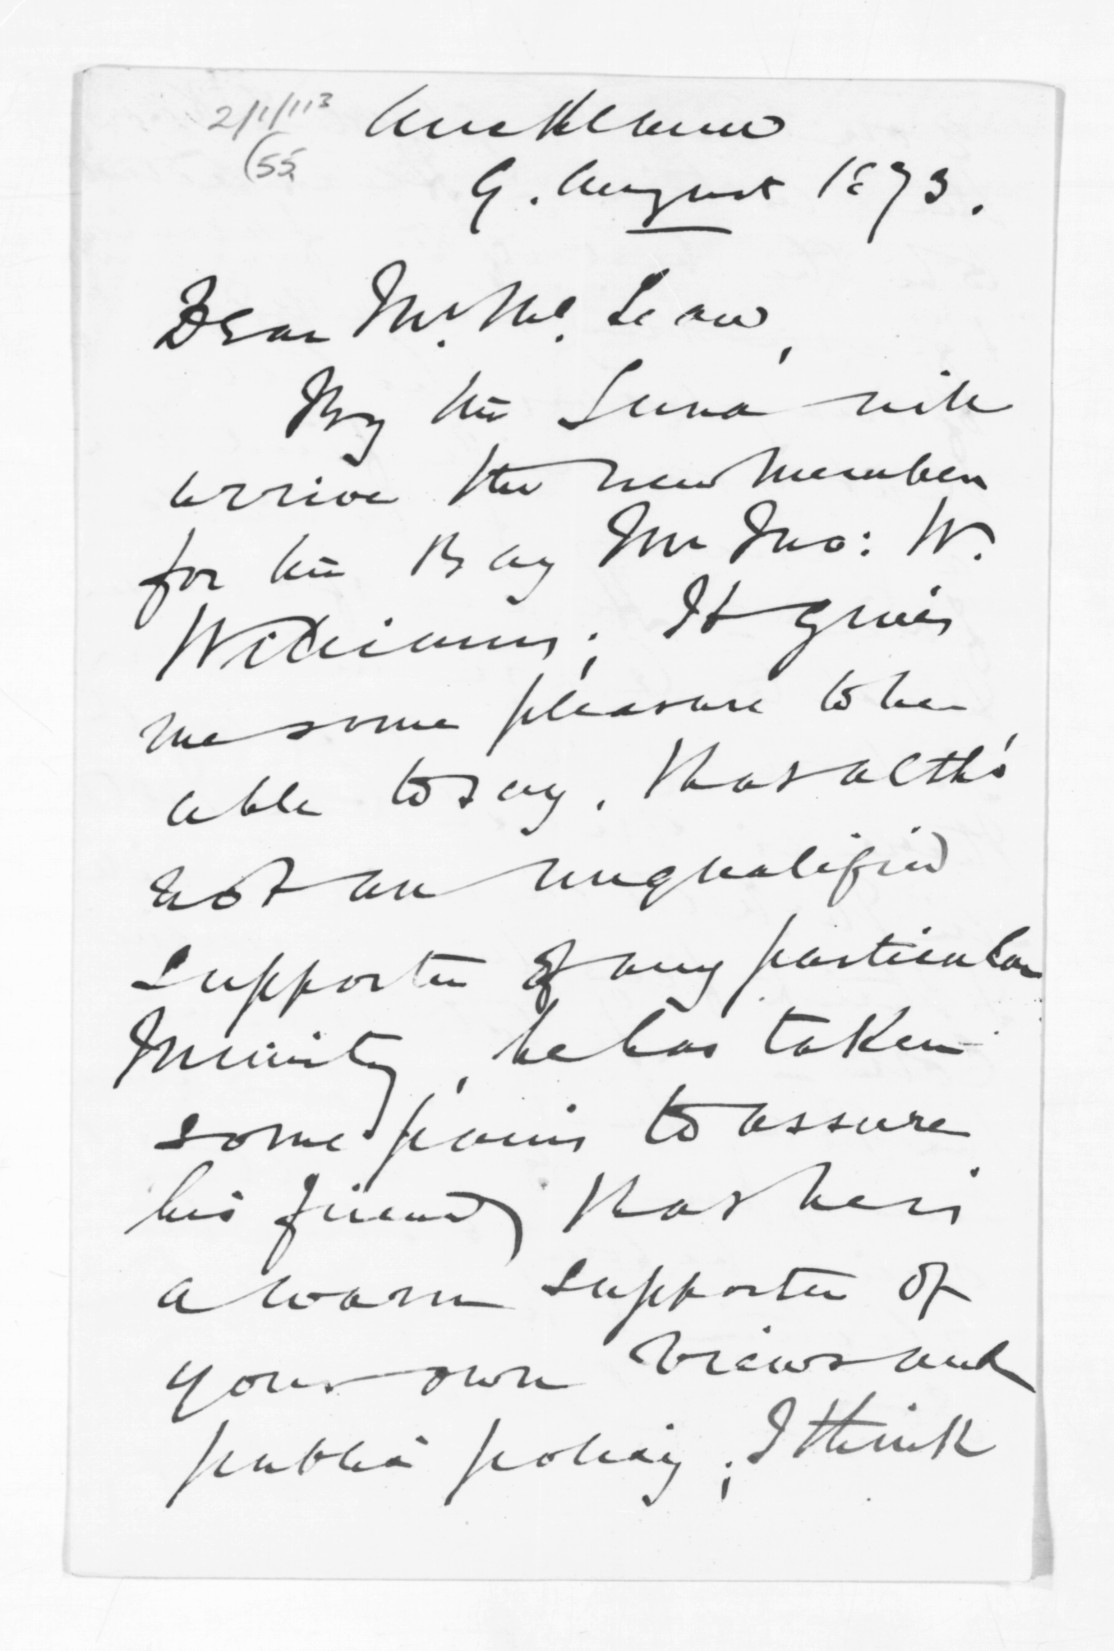 2/1/113
(55
Auckland
9. August 1873.
Dear Mr. McLean,
By the Luna will
arrive the new Member
for the Bay Mr Jno: W.
Williams; It gives
me some pleasure to be
able to say, that altho'
not an unqualified
supporter of any particular
Ministry, he has taken
some pains to assure
his friends that he is
a warm supporter of
your own views and
public policy; I think